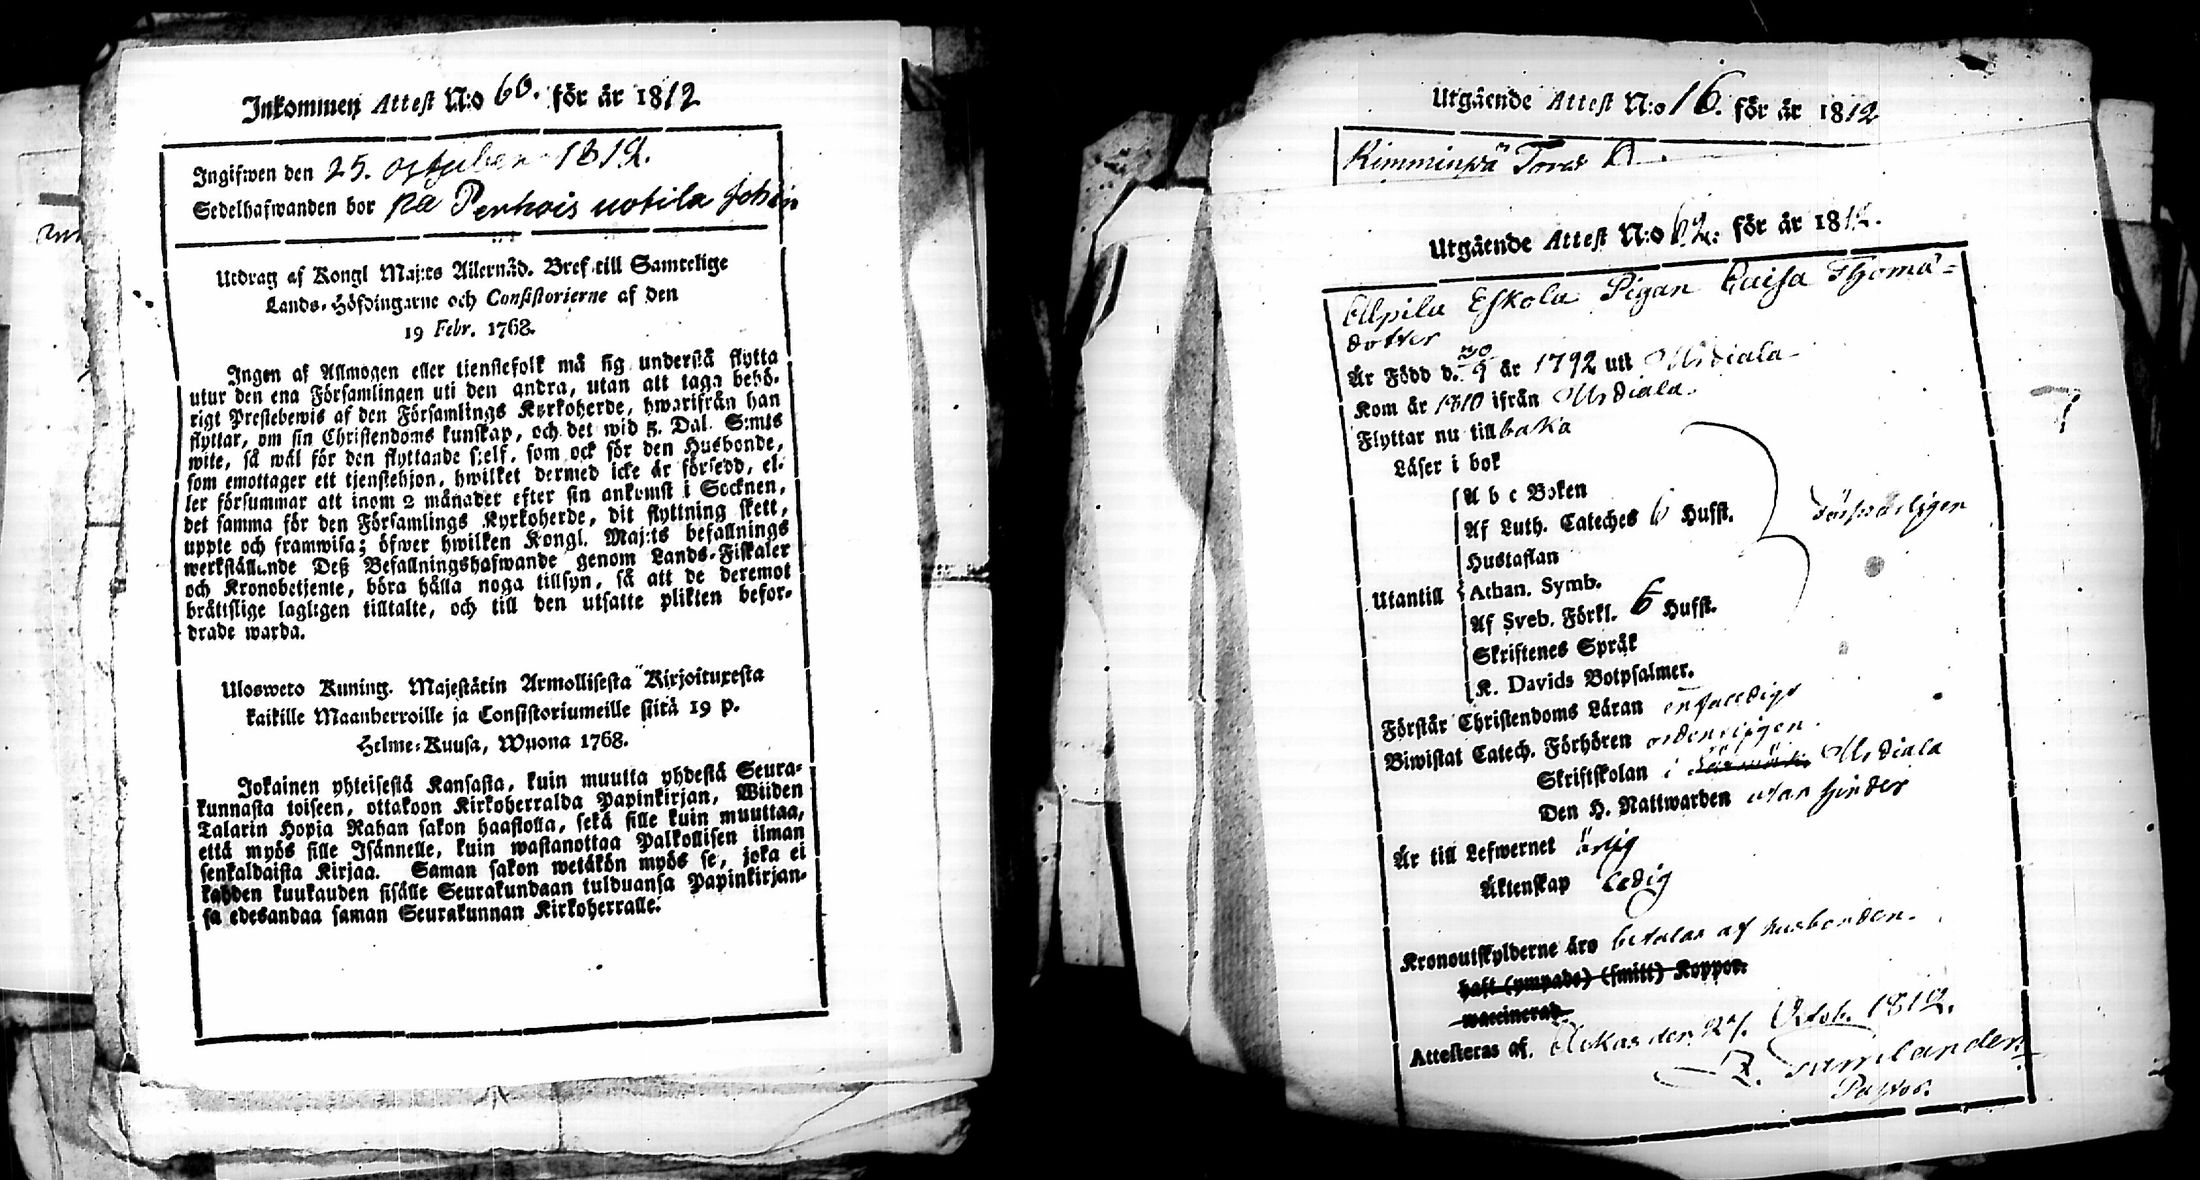 Inkommen Attest N:o 60. för år 1812
Ingifwen den 25. october 1812.
Sedelhafwanden bor på Penhois uotila Johan
Utdrag af Kongl Maj:ts Allernåd. Bref till Samtelige
Lands-Höfdingarne och Consistorierne af den
19 Febr. 1768.
Ingen af Allmogen eller tienstefolk må sig understå flytta
utur den ena Församlingen uti den andra, utan att taga behö-
rigt Prestebewis af den Församlings Kyrkoherde, hwarifrån han
flyttar, om sin Christendoms kunskap, och det wid 5. Dal. S:mts
wite, så wäl för den flyttande sjelf, som ock för den Husbonde,
som emottager ett tjenstehjon, hwilket dermed icke är försedd, el-
ler försummar att inom 2 månader efter sin ankomst i Socknen,
det samma för den Församlings Kyrkoherde, dit flyttning skett,
uppte och framwisa; öfwer hwilken Kongl. Maj:ts befallnings
werkställande Deß Befallningshafwande genom Lands-Fiskaler
och Kronobetjente, böra hålla noga tillsyn, så att de deremot
brättslige lagligen tilltalte, och till den utsatte plikten befor-
drade warda.
Ulosweto Kuning. Majestätin Armollisesta Kirjoituxesta
kaikille Maanherroille ja Consistoriumeille siitä 19 p.
Helme-Kuusa, Wuona 1768.
Jokainen yhteisestä Kansasta, kuin muutta yhdestä Seura-
kunnasta toiseen, ottakoon Kirkoherralda Papinkirjan, Wiiden
Talarin Hopia Rahan sakon haastolla, sekä sille kuin muuttaa,
että myös sille Isännelle, kuin wastanottaa Palkollisen ilman
senkaldaista Kirjaa. Saman sakon wetäkön myös se, joka ei
kahden kuukauden sisälle Seurakundaan tulduansa Papinkirjan-
sa edesandaa saman Seurakunnan Kirkoherralle.
Utgående Attest N:o 16. för år 1812
Utgående Attest N:o 62. för år 1812.
Eskola Pigan Caisa Thomæ-
dotter
Är Född d. 20/9 år 1792 uti Urdiala
Kom år 1810 ifrån Urdiala.
Flyttar nu till baka
Läser i bok
A b c Boken
Af Luth. Cateches 6 Hufst.
Hustaflan
Utantill
Athan. Symb.
Af Sveb. Förkl. 6 Hufst.
Skriftenes Språk
K. Davids Botpsalmer.
försvarligen
Förstår Christendoms Läran enfaldigt
Biwistat Catech. Förhören ordentligen.
Skriftskolan i Urdiala
Den H. Nattwarden utan hinder
Är till Lefwernet ärlig
Äktenskap Ledig
Kronoutskylderne äro betalas af husbonden.
haft (ympade) (smitt) Koppor.
waccinerad.
Attesteras af. den 24. Octob. 1812.
Pastor.